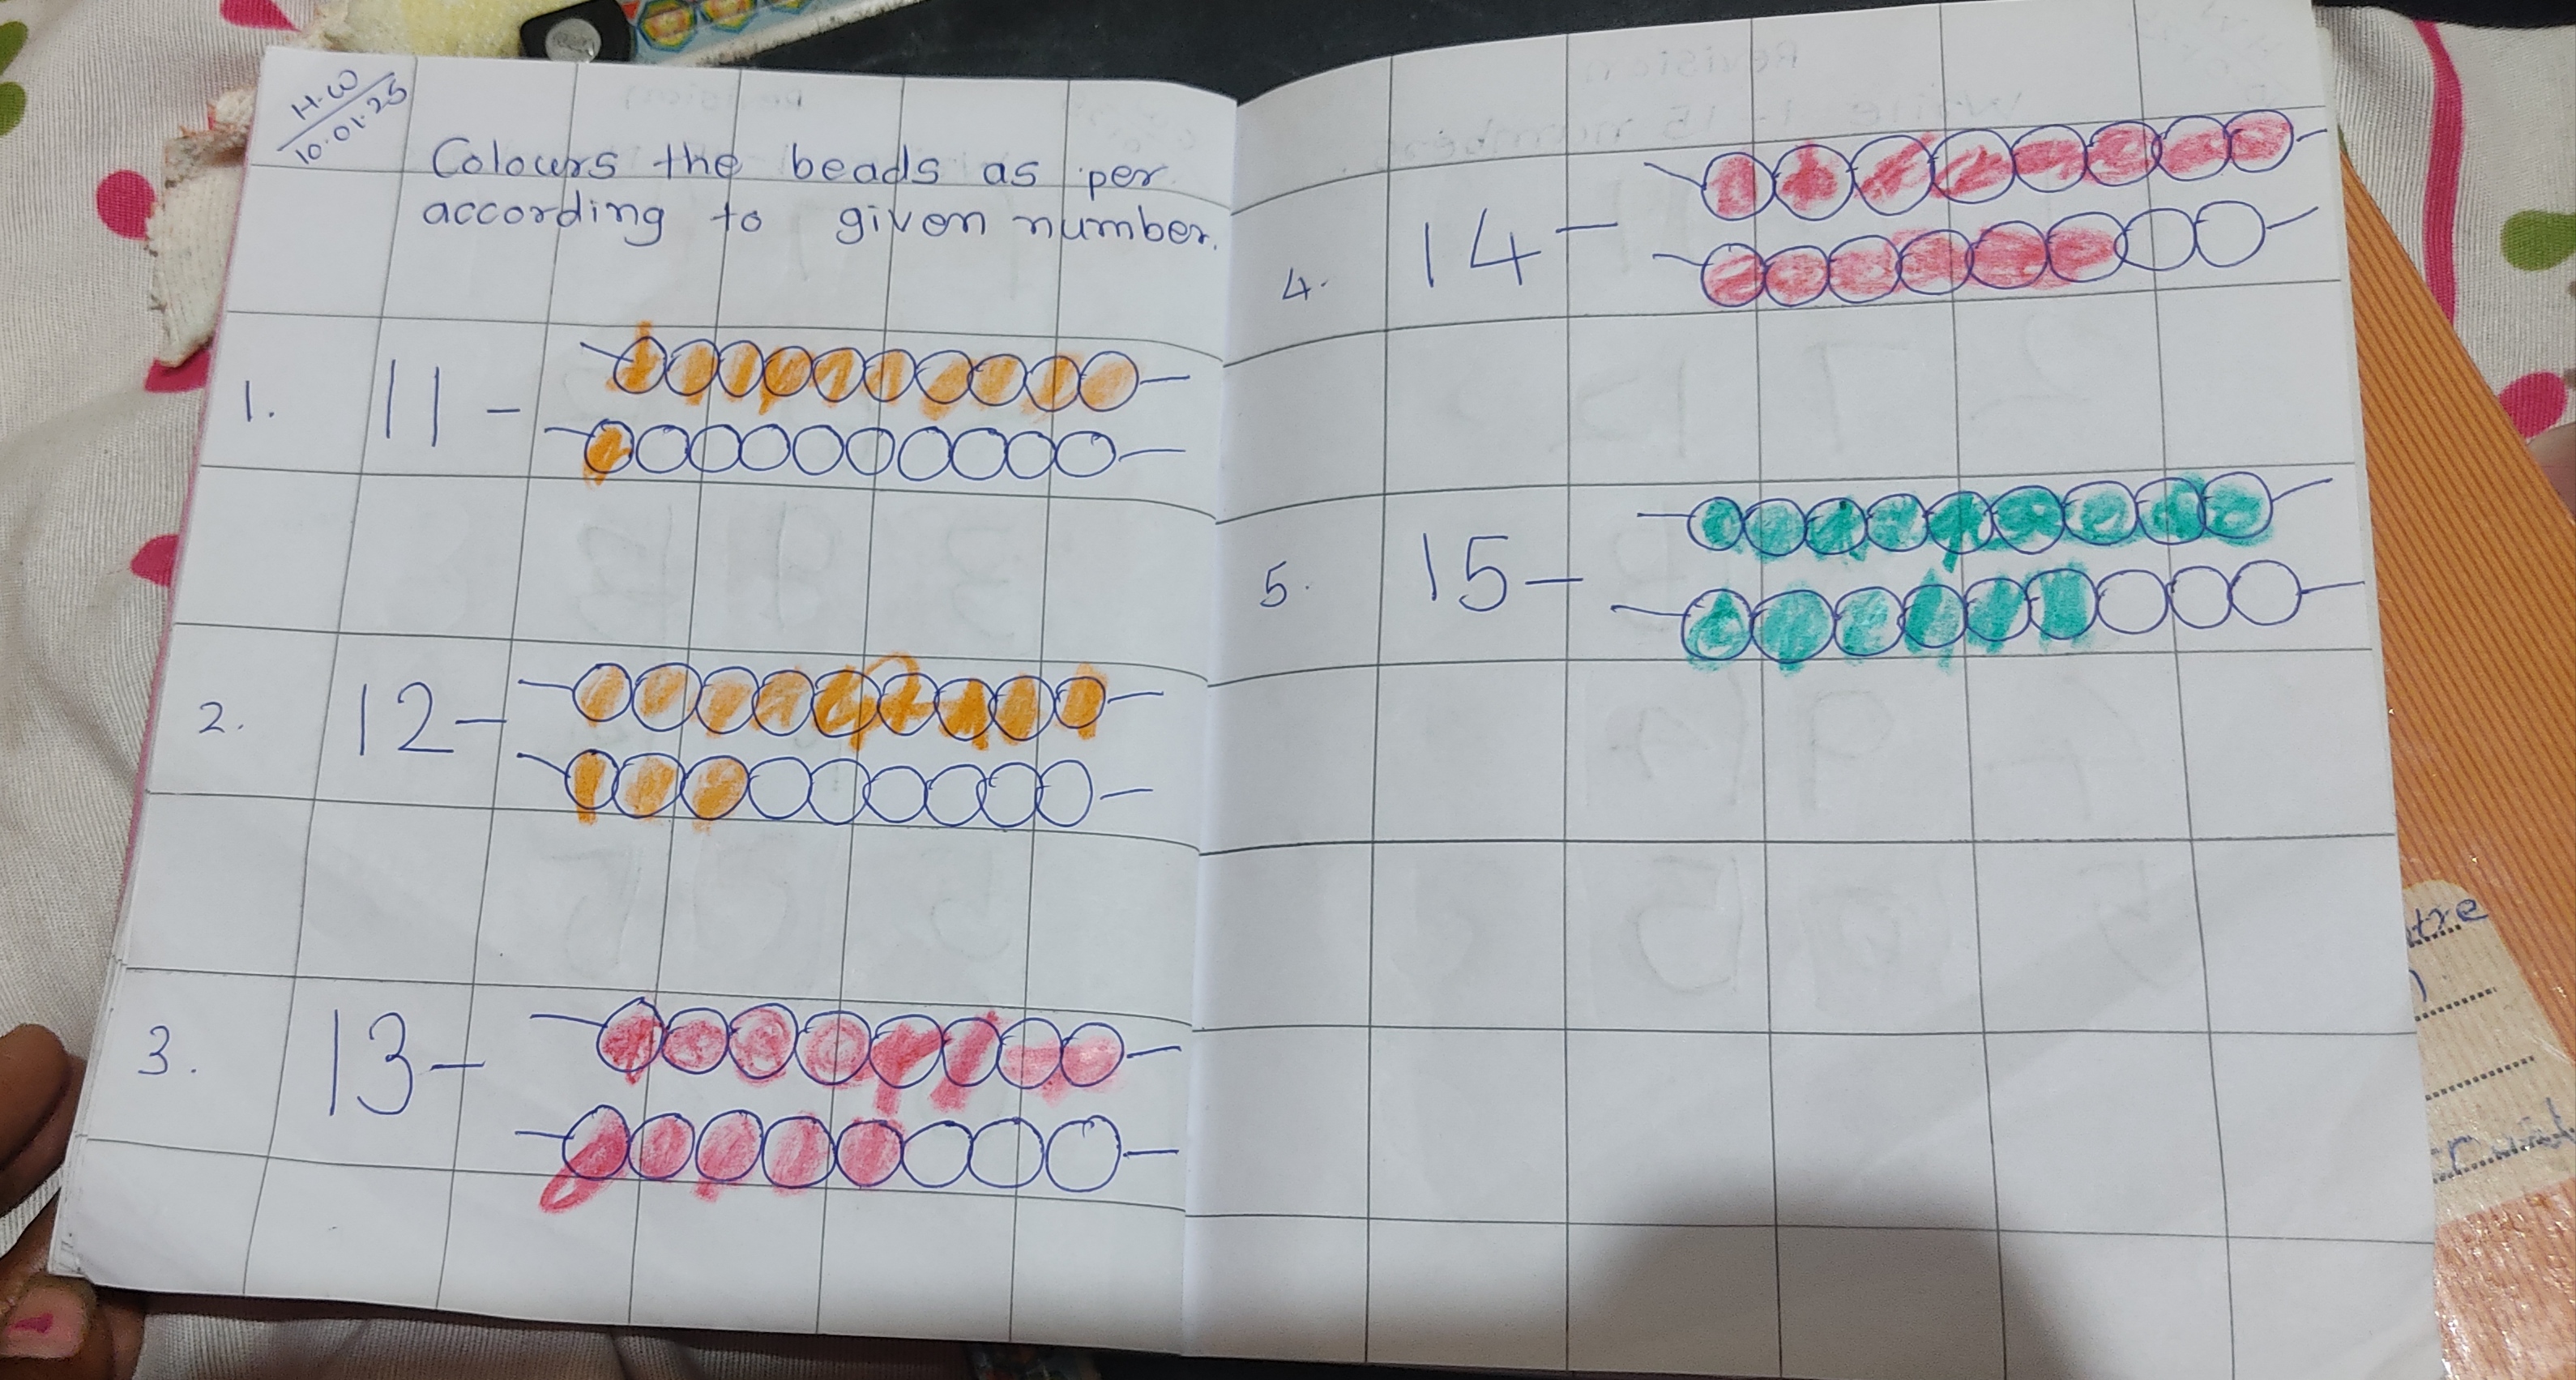 H.W
10.01.25
Colours the beads as per
according to given number.
1. 11 -
2. 12 -
3. 13 -
4. 14 -
5. 15 -